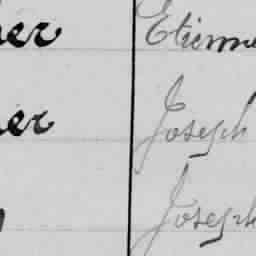 her Etienne
her Joseph
Joseph